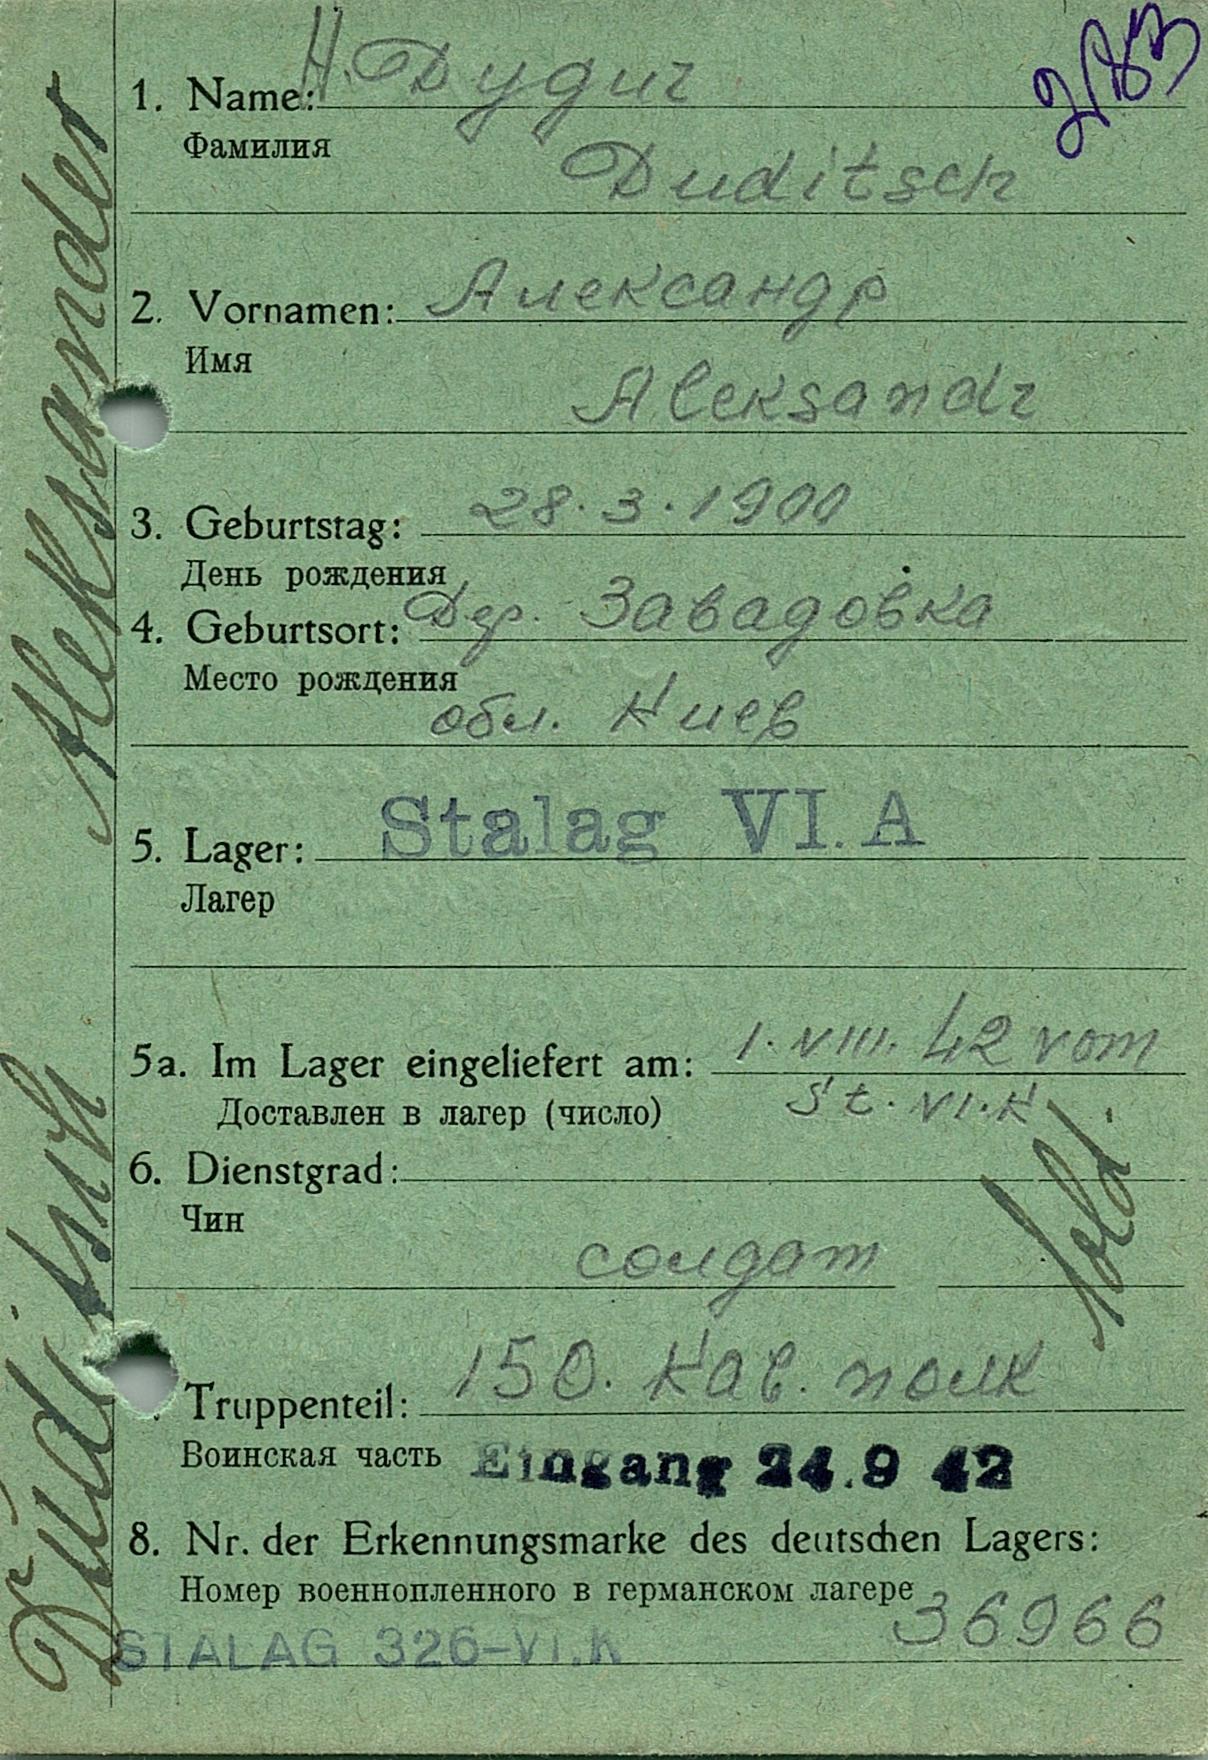 1. Name: Н. Дудич
Фамилия
Duditsch
2. Vornamen: Александр
Имя
Aleksandr
3. Geburtstag: 28.3.1900
День рождения
4. Geburtsort: Дер. Завадовка
Место рождения
обл. Киев
5. Lager: Stalag VI. A
Лагер
5a. Im Lager eingeliefert am: 1. VIII. 42 vom
Доставлен в лагер (число) St. VI. K
6. Dienstgrad:
Чин
солдат
Sold.
Truppenteil: 150. Кав. полк
Воинская часть Eingang 24.9 42
8. Nr. der Erkennungsmarke des deutschen Lagers:
Номер военнопленного в германском лагере
36966
STALAG 326-VI.K
Duditsch Aleksander